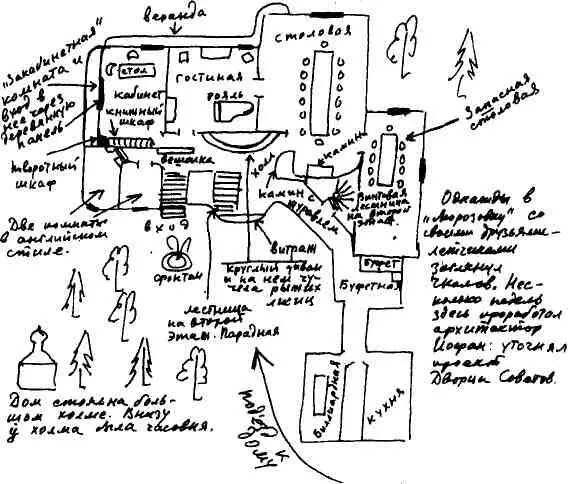 веранда
"Закабинетная"
комната и
вход в
нее через
деревянную
панель
столовая
стол
кабинет
книжный
шкаф
гостиная
рояль
Запасная
столовая
творотный
шкаф
вешалка
холл
камин
камин с
журавлем
Винтовая
лестница
на второй
этаж
Две комнаты
в английском
стиле.
вход
фронтон
витраж
Круглый диван
и на нем чу-
чела рыжих
лисиц
лестница
на второй
этаж. Парадная
буфет
Буфетная
Однажды в
"Морозовку" со
своими друзьями-
летчиками
заглянул
Чкалов. Нес-
колько недель
здесь проработал
архитектор
Иофан: уточнял
проект
Дворца Советов.
Бильярдная
кухня
подъезд к
дому
Дом стоял на боль-
шом холме. Внизу
у холма была часовня.